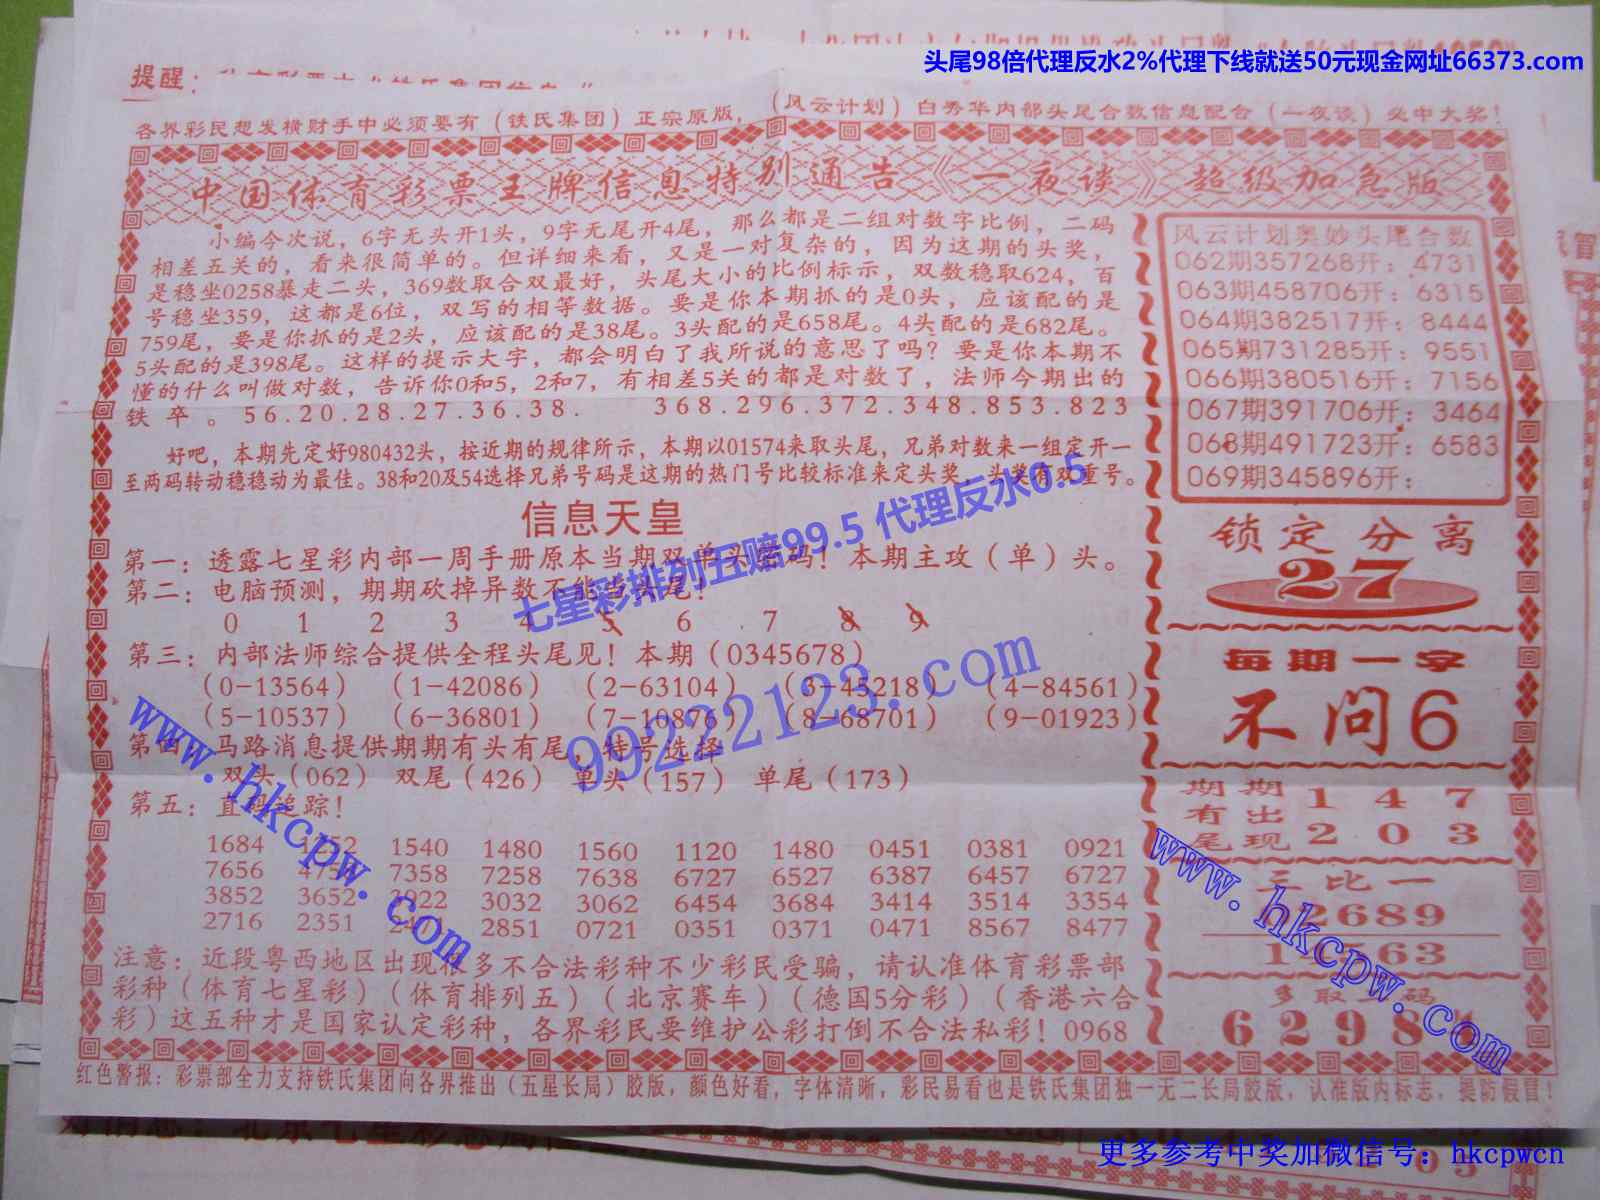 头尾98倍代理反水2%代理下线就送50元现金网址66373.com
提醒：
各界彩民想发横财手中必须要有（铁氏集团）正宗原版，（风云计划）白秀华内部头尾合数信息配合（一夜谈）必中大奖！
中国体育彩票王牌信息特别通告《一夜谈》超级加急版
小编今次说，6字无头开1头，9字无尾开4尾，那么都是二组对数字比例，二码
相差五关的，看来很简单的。但详细来看，又是一对复杂的，因为这期的头奖，
是稳坐0258暴走二头，369数取合双最好，头尾大小的比例标示，双数稳取624，百
号稳坐359，这都是6位，双写的相等数据。要是你本期抓的是0头，应该配的是
759尾，要是你抓的是2头，应该配的是38尾。3头配的是658尾。4头配的是682尾。
5头配的是398尾。这样的提示大字，都会明白了我所说的意思了吗？要是你本期不
懂的什么叫做对数，告诉你0和5，2和7，有相差5关的都是对数了，法师今期出的
铁卒。56.20.28.27.36.38. 368.296.372.348.853.823
好吧，本期先定好980432头，按近期的规律所示，本期以01574来取头尾，兄弟对数来一组定开一
至两码转动稳稳动为最佳。38和20及54选择兄弟号码是这期的热门号比较标准来定头奖，头奖有双重号。
信息天皇
第一：透露七星彩内部一周手册原本当期双单头密码！本期主攻（单）头。
第二：电脑预测，期期砍掉异数不能当头尾！
0 1 2 3 4 5 6 7 8 9
第三：内部法师综合提供全程头尾见！本期（0345678）
（0-13564）（1-42086）（2-63104）（3-45218）（4-84561）
（5-10537）（6-36801）（7-10876）（8-68701）（9-01923）
第四：马路消息提供期期有头有尾，特号选择
双头（062） 双尾（426） 单头（157） 单尾（173）
第五：直码追踪！
1684 1252 1540 1480 1560 1120 1480 0451 0381 0921
7656 4756 7358 7258 7638 6727 6527 6387 6457 6727
3852 3652 3922 3032 3062 6454 3684 3414 3514 3354
2716 2351 2851 0721 0351 0371 0471 8567 8477
注意：近段粤西地区出现很多不合法彩种不少彩民受骗，请认准体育彩票部
彩种（体育七星彩）（体育排列五）（北京赛车）（德国5分彩）（香港六合
彩）这五种才是国家认定彩种，各界彩民要维护公彩打倒不合法私彩！0968
风云计划奥妙头尾合数
062期357268开：4731
063期458706开：6315
064期382517开：8444
065期731285开：9551
066期380516开：7156
067期391706开：3464
068期491723开：6583
069期345896开：
锁定分离
27
每期一字
不问6
期期有出尾现
1 4 7
2 0 3
三比一
2689
563
多取码
6298
红色警报：彩票部全力支持铁氏集团向各界推出（五星长局）胶版，颜色好看，字体清晰，彩民易看也是铁氏集团独一无二长局胶版，认准版内标志，提防假冒！
七星彩排列五赔99.5 代理反水0.5
99222123.com
www.hkcpw.com
www.hkcpw.com
更多参考中奖加微信号：hkcpwcn